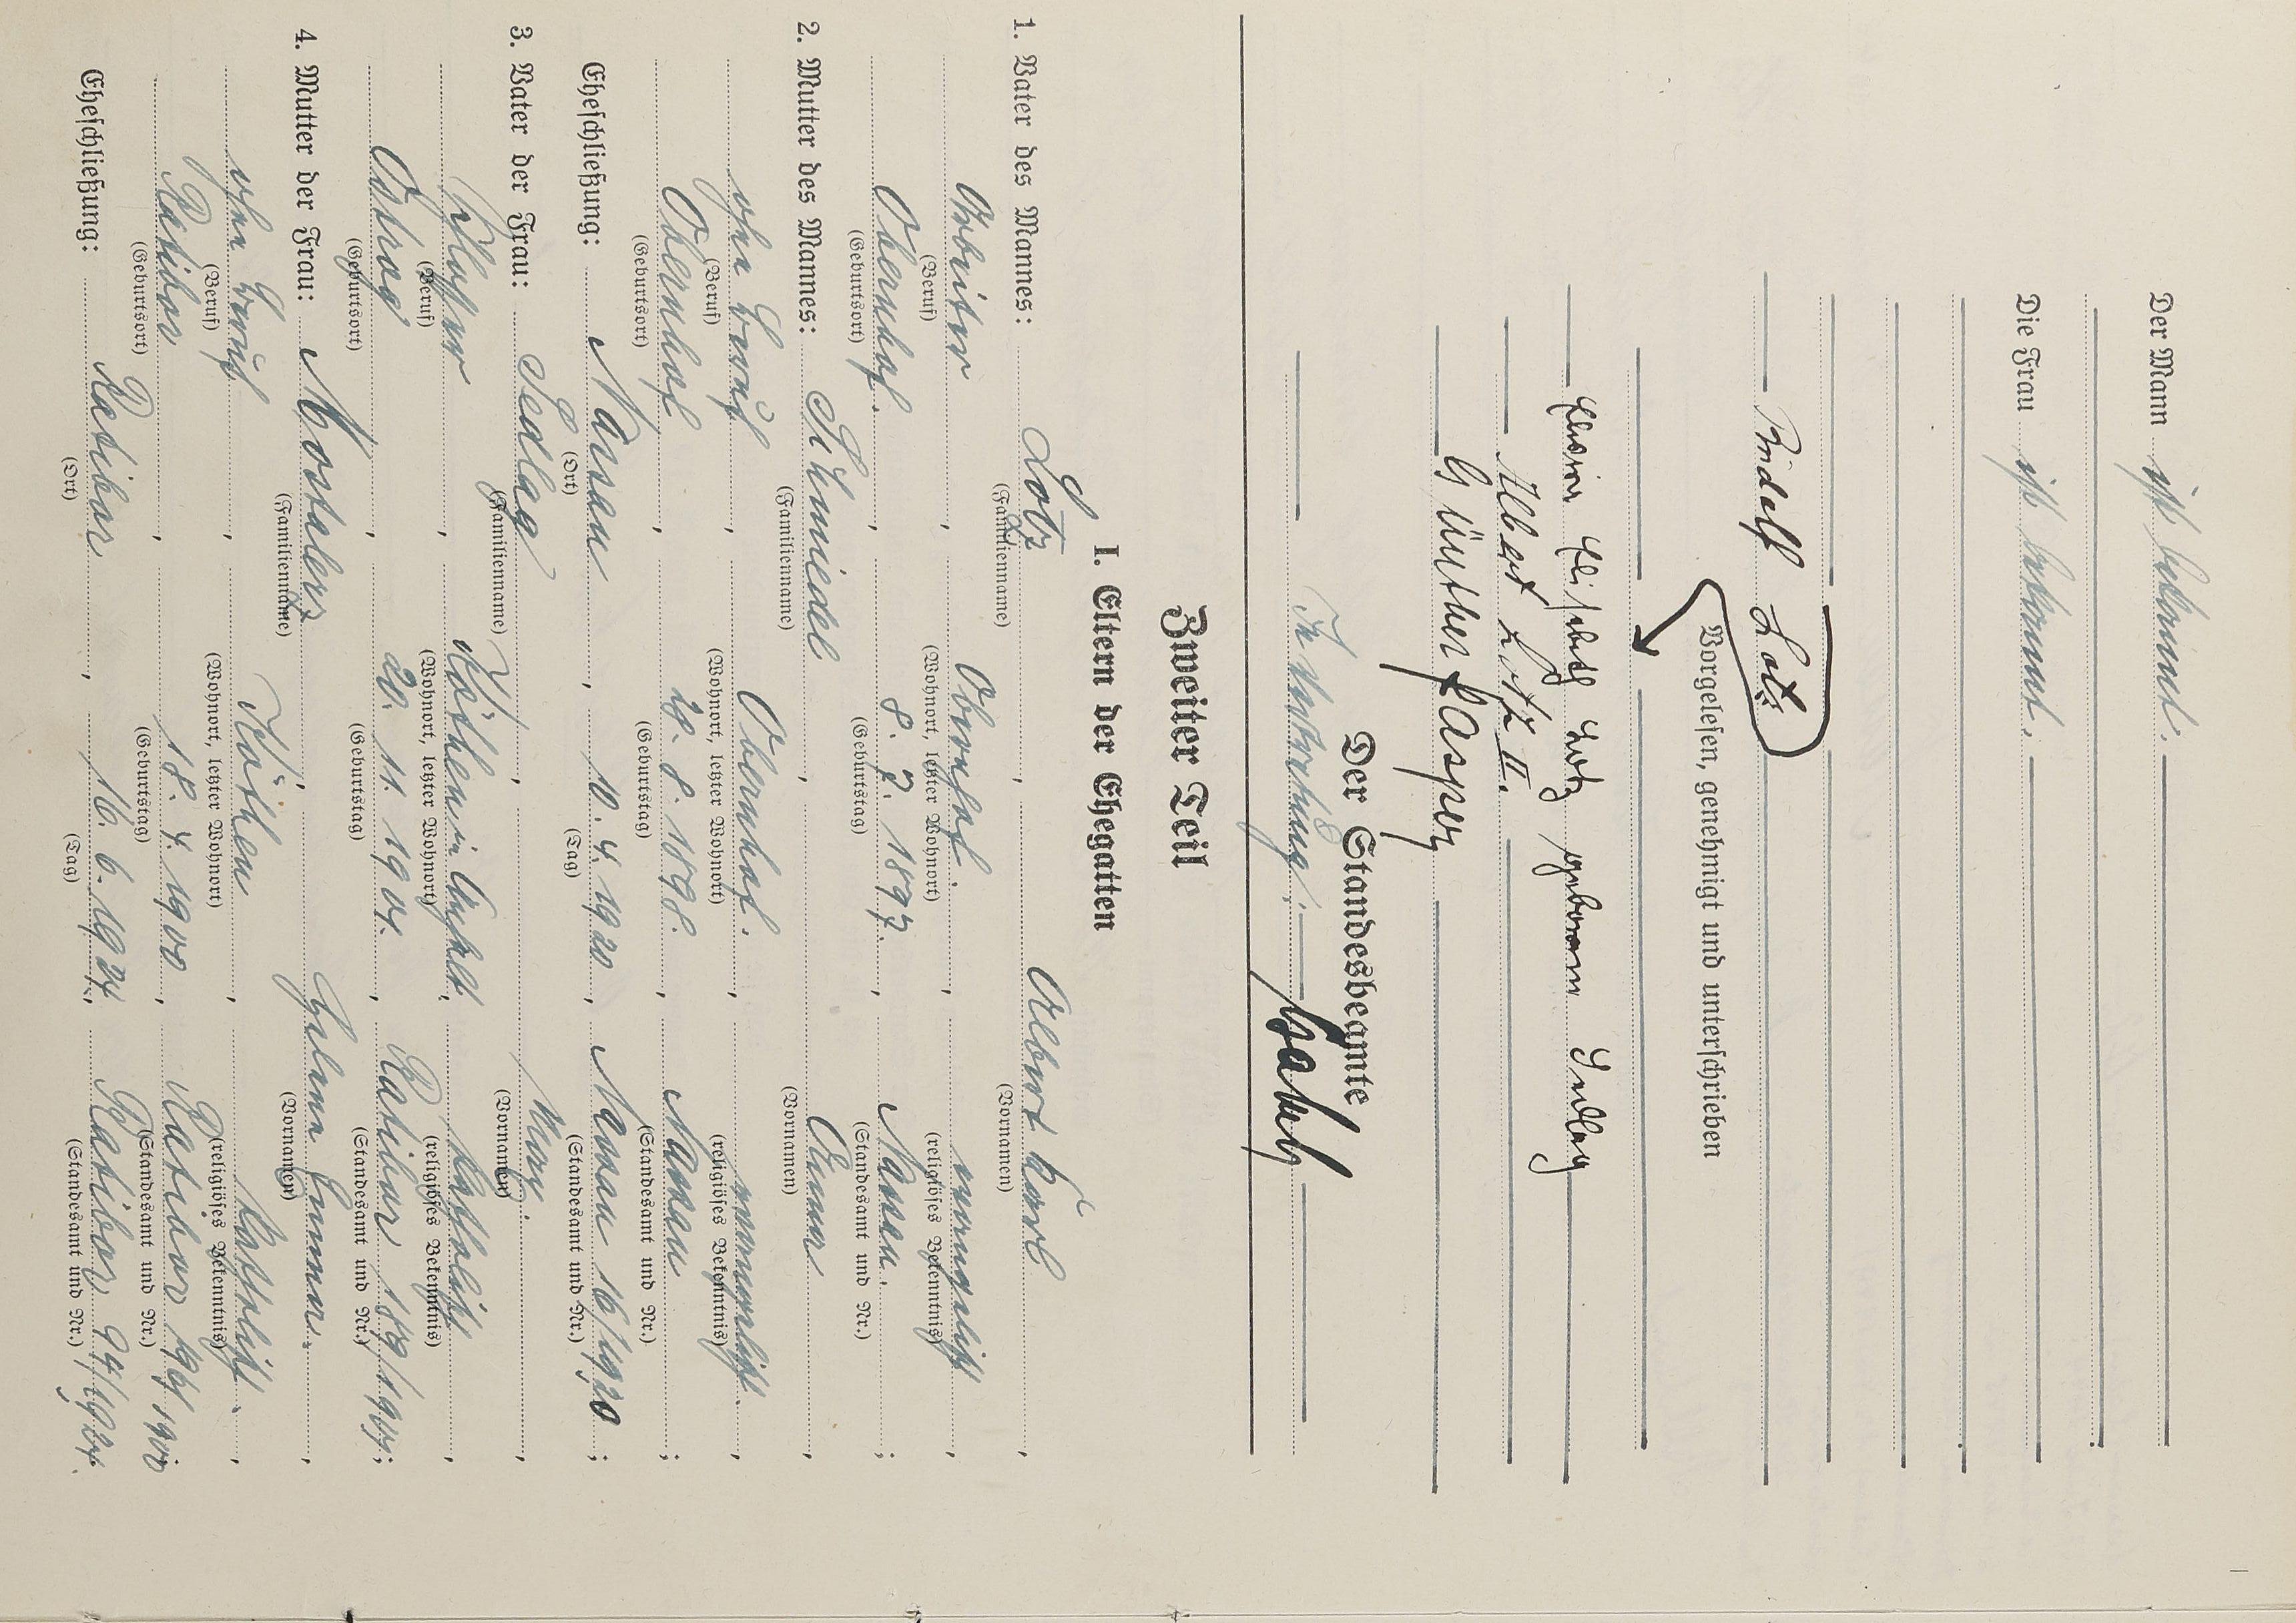 Der Mann ist bekannt.
Die Frau ist bekannt.
Rudolf Lotz
Vorgelesen, genehmigt und unterschrieben
Elisabeth Lotz geborene Sedlag
Albert Lotz II.
Günther Kasper
Der Standesbeamte
In Vertretung:
Zweiter Teil
I. Eltern der Ehegatten
1. Vater des Mannes: Lotz, Albert Karl,
(Familienname) (Vornamen)
Arbeiter, Obernhof., evangelisch,
(Beruf) (Wohnort, letzter Wohnort) (religiöses Bekenntnis)
Obernhof., 8. 7. 1897., Nassau.;
(Geburtsort) (Geburtstag) (Standesamt und Nr.)
2. Mutter des Mannes: Schmiedel, Anna,
(Familienname) (Vornamen)
ohne Beruf, Obernhof., evangelisch.,
(Beruf) (Wohnort, letzter Wohnort) (religiöses Bekenntnis)
Obernhof, 8. 1898., Nassau;
(Geburtsort) (Geburtstag) (Standesamt und Nr.)
Eheschließung: Nassau, 10. 4. 1920, Nassau 16/1920;
(Ort) (Tag) (Standesamt und Nr.)
3. Vater der Frau: Sedlag, Max.,
(Familienname) (Vornamen)
Schlosser, Köthen in Anhalt, katholisch,
(Beruf) (Wohnort, letzter Wohnort) (religiöses Bekenntnis)
Ostrog, 20. 11. 1901., Ratibor 189/1901;
(Geburtsort) (Geburtstag) (Standesamt und Nr.)
4. Mutter der Frau: Mosalerz, Helene Emma.,
(Familienname) (Vornamen)
ohne Beruf, Köthen, katholisch.,
(Beruf) (Wohnort, letzter Wohnort) (religiöses Bekenntnis)
Ratibor, 18. 4. 1900, Ratibor
(Geburtsort) (Geburtstag) (Standesamt und Nr.)
Eheschließung: Ratibor, 16. 6. 1924, Ratibor 94/1924.
(Ort) (Tag) (Standesamt und Nr.)